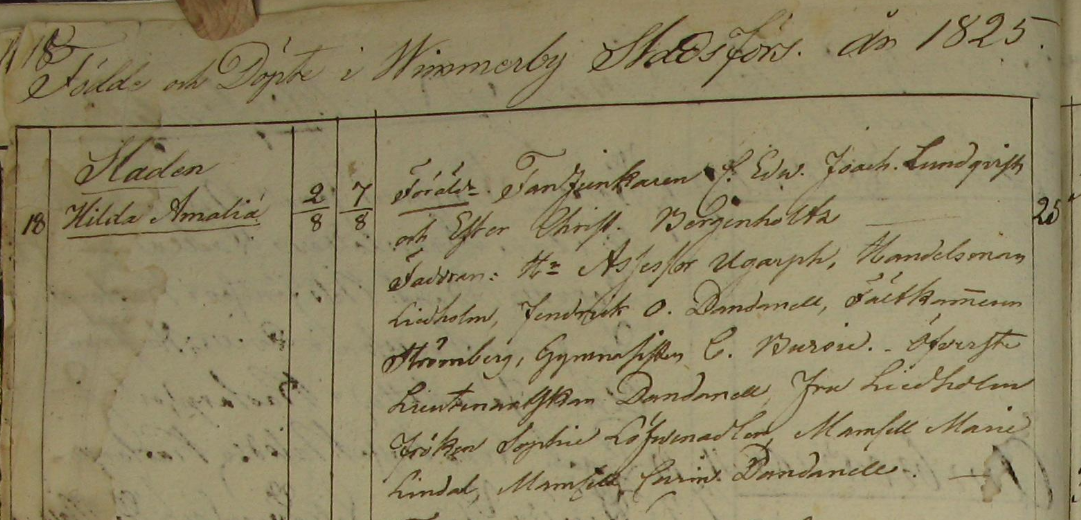 118
Födde och Döpte i Wimmerby StadsFörs. år 1825.
Staden
18 Hilda Amalia 2/8 7/8
Föräldr. FanJunkaren C. Edw. Joach. Lundqvist
och Ester Christ. Bergenholtz 25
Faddran: Hr Assessor Ugarph, Handelsman
Liedholm, Fendrick O. Dandanell, Fältkamreren
Strömberg, Gymnasisten C. Bursie. - Öfverste
Lieutenantskan Dandanell, Fru Liedholm
Fröken Sophie Löfvenadler, Mamsell Marie
Lindal, Mamsell Carin. Dandanell.